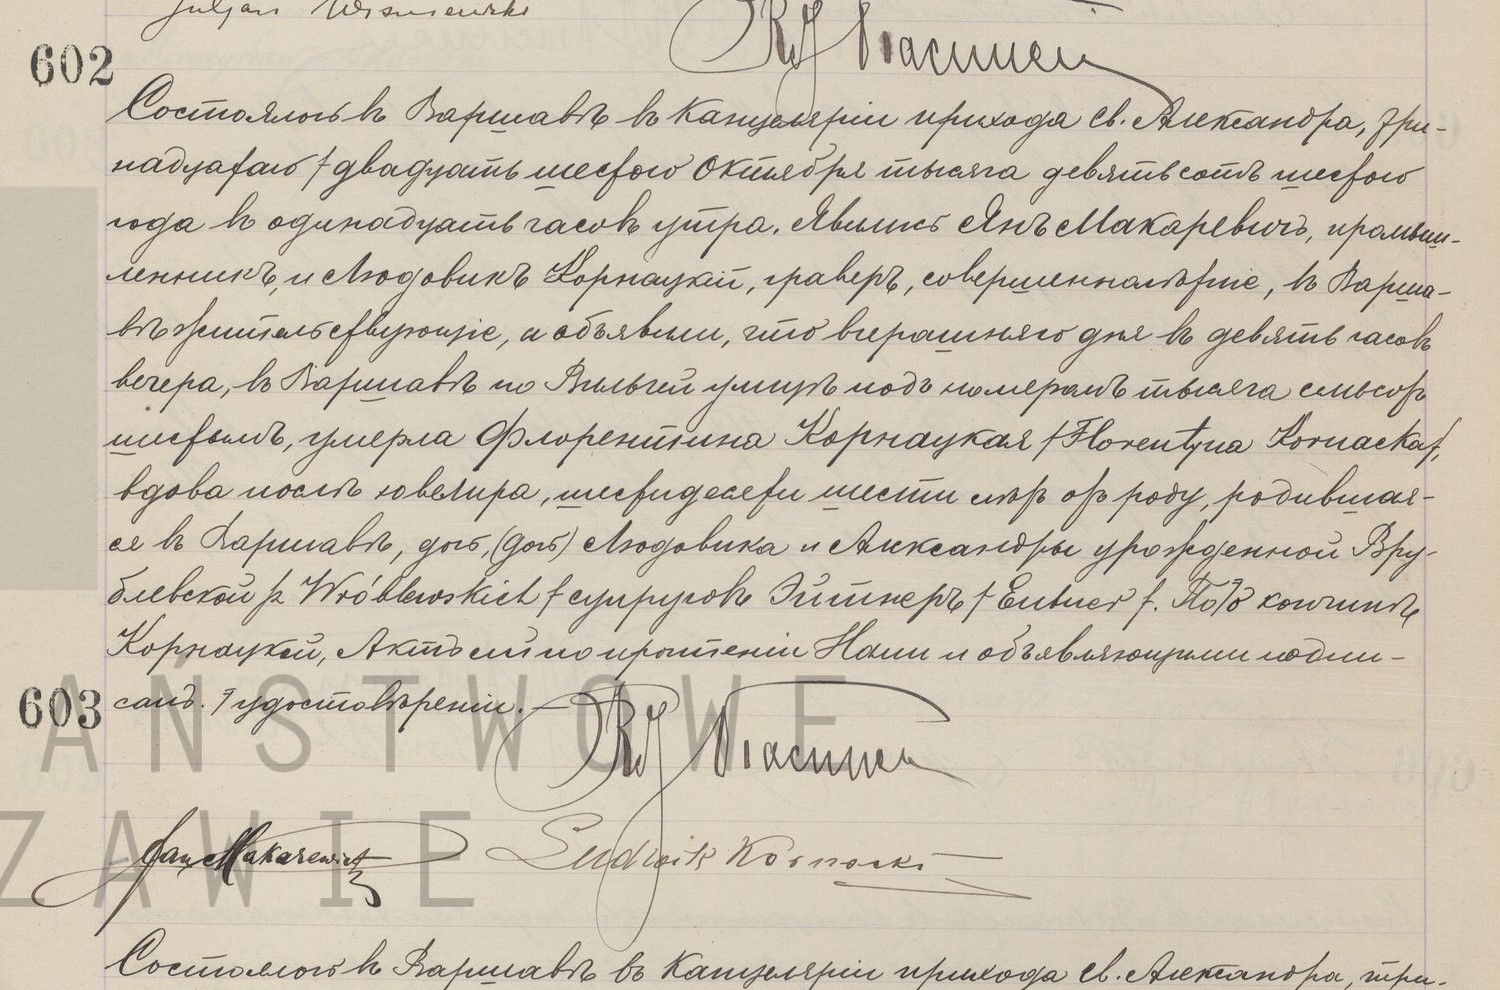 Juljan Wiśniewski
602
Состоялось въ Варшавѣ въ Канцеляріи прихода Св. Александра, три-
надцатаго / двадцать шестого Октября тысяча девятьсотъ шестого
года въ одинадцать часовъ утра. Явились Янъ Макаревичъ, промыш-
ленникъ, и Людовикъ Корнацкій, граверъ, совершеннолѣтніе, въ Варша-
вѣ жительствующіе, и объявили, что вчерашняго дня въ девять часовъ
вечера, въ Варшавѣ по Вильчей улицѣ подъ номеромъ тысяча
шестымъ, умерла Флорентина Корнацкая / Florentyna Kornacka /,
вдова послѣ ювелира, шестидесяти шести лѣтъ отъ роду, родившая-
ся въ Варшавѣ, дочь, (дочь) Людовика и Александры урожденной Вру-
блевской / z Wróblewskich / супруговъ Эйтнеръ / Eutner /. По кончинѣ
Корнацкой, Актъ сей по прочтеніи Нами и объявляющими подпи-
603
санъ. / удостовѣреніи. —
AŃSTWOWE
ZAWIE
Jan Makarewicz Ludwik Kornacki
Состоялось въ Варшавѣ въ Канцеляріи прихода Св. Александра, три-